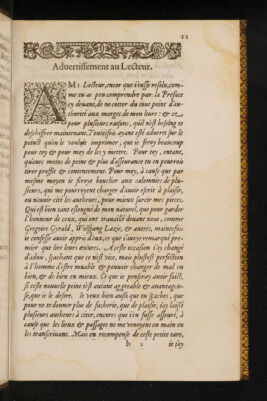 11
Aduertissement au Lecteur.
AMI Lecteur, encor que i'eusse resolu, com-
me tu as peu comprendre par la Preface
cy deuant, de ne cotter du tout point d'au-
thorité aux marges de mon liure: & ce
pour plusieurs raisons, qu'il n'est besoing te
deschiffrer maintenant. Toutesfois ayant esté aduerti sur le
point qu'on le vouloit imprimer, que ie feroy beaucoup
pour toy & pour moy de les y mettre. Pour toy, entant,
qu'auec moins de peine & plus d'asseurance tu en pourrois
tirer profit & contentement. Pour moy, à cause que par
mesme moyen ie feroye boucler aux calomnies de plu-
sieurs, qui me pourroyent charger d'auoir escrit à plaisir,
ou n'auoir cité les autheurs, pour mieux sarcir mes pieces.
Qui est bien tant eslongné de mon naturel, que pour garder
l'honneur de ceux, qui ont trauaillé deuant nous, comme
Gregoire Gyrald, Wolfgang Lazie, & autres, mainte fois
ie confesse auoir appris d'eux, ce que i'auoye remarqué pre-
mier que lire leurs œuures. A ceste occasion i'ay changé
d'aduis, sçachant que ce n'est vice, mais plustost perfection
à l'homme d'estre muable & pouuoir changer de mal en
bien, & de bien en mieux. Ce que ie penseray auoir faict,
si ceste nouuelle peine t'est autant aggreable & auantageu-
se, que ie le desire. Ie veux bien aussi que tu sçaches, que
pour ne te donner plus de facherie, que de plaisir, i'ay laissé
plusieurs autheurs à citer, encores que i'en fusse asseuré, à
cause que les lieux & passages ne me venoyent en main, en
les transcriuant. Mais en recompense de ceste petite tare,
b 2 ie t'ay